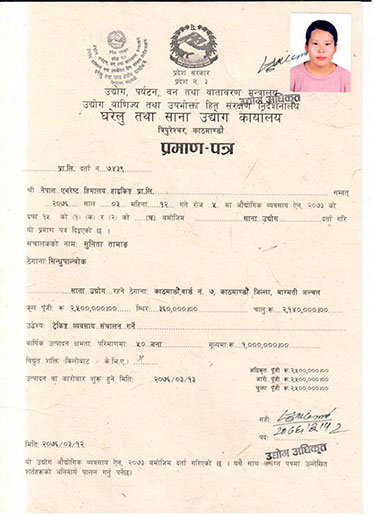 प्रदेश सरकार
प्रदेश नं. ३
उद्योग, पर्यटन, वन तथा वातावरण मन्त्रालय
उद्योग वाणिज्य तथा उपभोक्ता हित संरक्षण निर्देशनालय
उद्योग अधिकृत
घरेलु तथा साना उद्योग कार्यालय
त्रिपुरेश्वर, काठमाण्डौ
प्रमाण-पत्र
प्रा.लि. दर्ता नं. ७४३९
श्री नेपाल एभरेष्ट हिमालय हाइकिङ्ग प्रा.लि. सम्वत्
२०७६ साल ०३ महिना १२ गते रोज ५ मा औद्योगिक व्यवसाय ऐन, २०७३ को
दफा १५ को (१) (क) र (२) को (ख) बमोजिम साना उद्योग दर्ता गरि
यो प्रमाण पत्र दिइएको छ ।
संचालकको नाम: सुनिता तामाङ
ठेगाना: सिन्धुपाल्चोक
साना उद्योग रहने ठेगाना: काठमाडौं,वार्ड नं. ७, काठमाण्डौं जिल्ला, बागमती अञ्चल
कूल पूँजी रू २,५००,०००/०० स्थिर: ३६०,०००/०० चालु: रू २,१४०,०००/००
उद्धेश्य: ट्रेकिङ्ग व्यवसाय संचालन गर्ने
वार्षिक उत्पादन क्षमता: परिमाणमा: ५० जना मूल्यमा: रू १,०००,०००/००
विद्युत शक्ति (किलोवाट / के.भि.ए.) x
उत्पादन वा कारोवार शुरू हुने मिति: २०७६/०३/१३
अधिकृत पूँजी रू.२५,०००००/००
जारी पूँजी रू.२५,०००००/००
चुक्ता पूँजी रू.२५,०००००/००
सही:
पद:
उद्योग अधिकृत
मिति: २०७६/०३/१२
यो उद्योग औद्योगिक व्यवसाय ऐन, २०७३ बमोजिम दर्ता गरिएको छ । यसै साथ संलग्न पत्रमा उल्लेखित
शर्तहरूको अनिवार्य पालन गर्नु पर्नेछ।